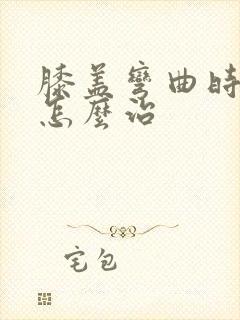 膝盖彎曲時
怎麼治
宅包